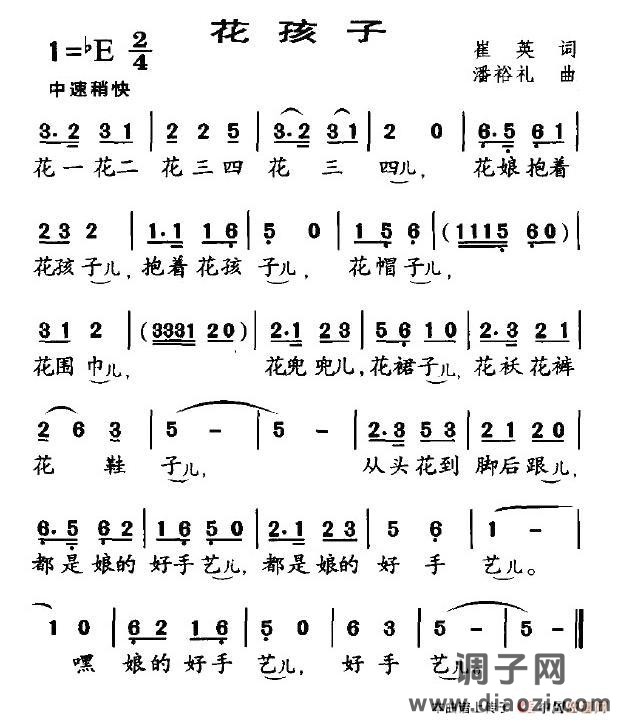 花孩子
1=♭E 2/4
崔英 词
中速稍快
潘裕礼 曲
3.2 31 | 2 2 5 | 3.2 31 | 2 0 | 6.5 61 |
花一花二 花三四 花三 四儿， 花娘抱着
23 2 | 1.1 16 | 5 0 | 1 5 6 | (1115 60) |
花孩子儿，抱着花孩 子儿， 花帽子儿，
31 2 | (3331 20) | 2.1 23 | 56 10 | 2.3 21 |
花围巾儿， 花兜兜儿，花裙子儿，花袄花裤
2 6 3 | 5 - | 5 - | 2.3 53 | 21 20 |
花鞋 子儿， 从头花到 脚后跟儿，
6.5 62 | 16 50 | 2.1 23 | 5 6 | 1 - |
都是娘的 好手艺儿，都是娘的 好手 艺儿。
1 0 | 62 16 | 5 0 | 6 3 | 5 - | 5 - ‖
嘿 娘的好手 艺儿， 好手 艺儿。
调子网
www.diaozi.com